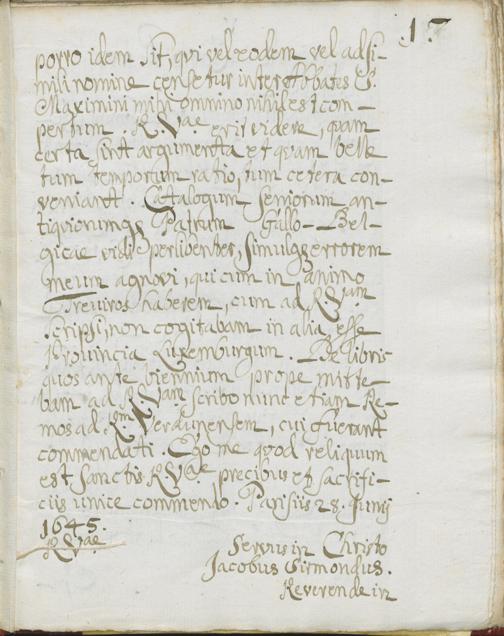 17
porro idem sit, qui vel eodem vel adsi-
mili nomine censetur inter Abbates S.
Maximini mihi omnino nihil est com-
pertum. R. Vae erit videre, quam
certa sint argumenta et quam belle
tum temporum ratio, tum cetera con-
veniant. Catalogum Seniorum an-
tiquorumq; Patrum Gallo-Bel-
gicae vidi perlibenter, simulq; errorem
meum agnovi, qui cum in animo
Treviros haberem, cum ad R. Vam
scripsi, non cogitabam in alia esse
Provincia Luxemburgum. De libris
quos ante biennium prope mitte-
bam ad R. Vam scribo nunc etiam Re-
mos ad Verdunensem, cui fuerant
commendati. Ego me quod reliquum
est sanctis R. Vae precibus et sacrifi-
ciis unice commendo. Parisiis 28. Junij
1645.
R. Vae
Servus in Christo
Jacobus Sirmondus.
Reverende in